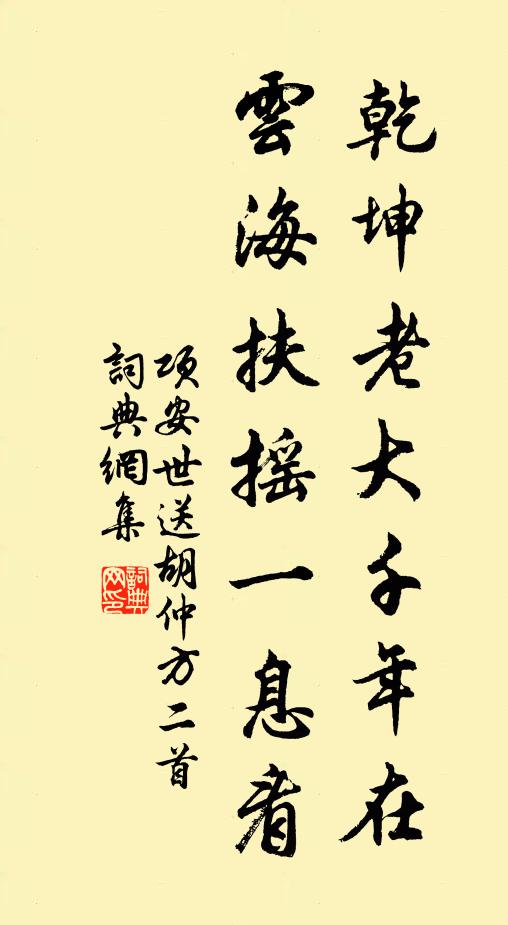 乾坤老大千年在
雲海扶摇一息看
项安世送胡仲方二首
詞典網集
詞典
网印